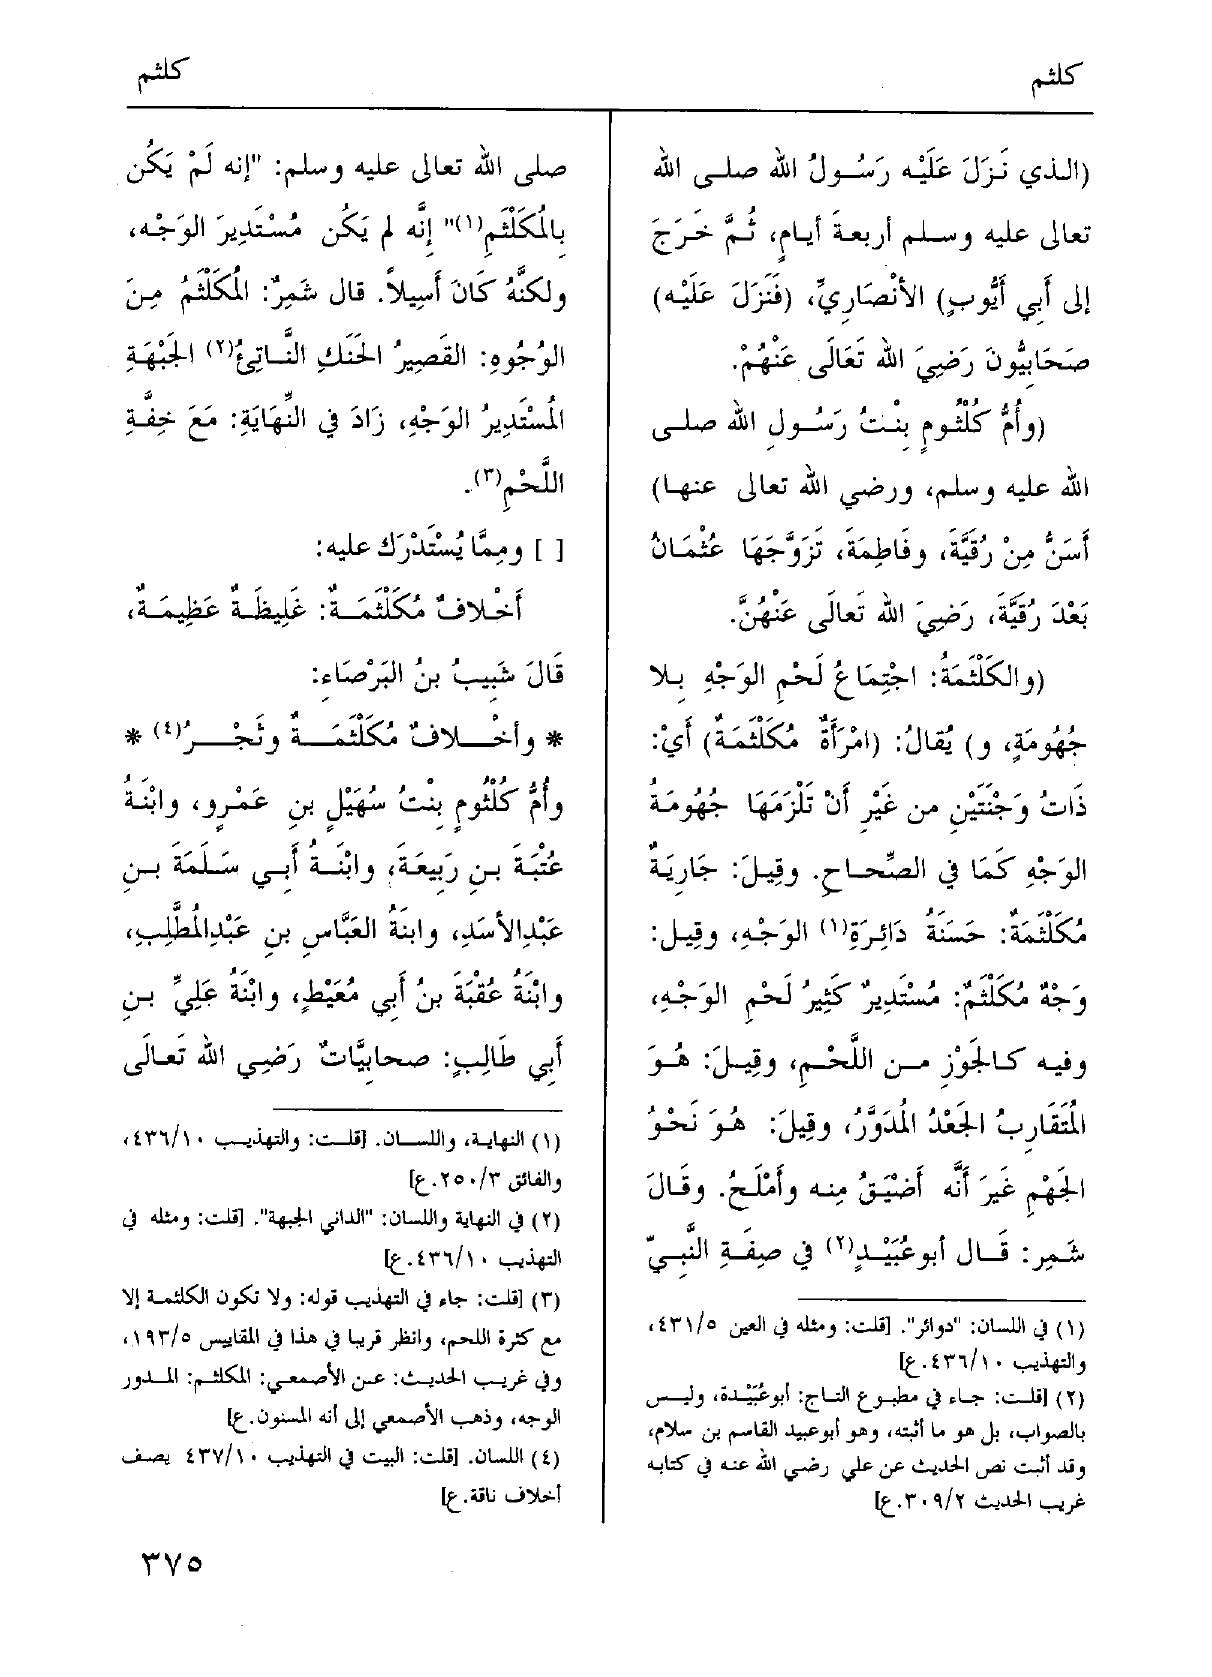 كلثم
كلثم
(الذي نَزَلَ عَلَيْه رَسُولُ الله صلى الله
تعالى عليه وسلم أربعةَ أيامٍ، ثُمَّ خَرَجَ
إلى أَبِي أَيُّوبٍ) الأَنْصَارِيِّ، (فَنَزَلَ عَلَيْه)
صَحَابِيُّونَ رَضِيَ الله تَعَالَى عَنْهُمْ.
(وأُمُّ كُلْثُومٍ بِنْتُ رَسُولِ الله صلى
الله عليه وسلم، ورضي الله تعالى عنها)
أَسَنُّ مِنْ رُقَيَّةَ، وفَاطِمَةَ، تَزَوَّجَهَا عُثْمَانُ
بَعْدَ رُقَيَّةَ، رَضِيَ الله تَعَالَى عَنْهُنَّ.
(والكَلْثَمَةُ: اجْتِمَاعُ لَحْمِ الوَجْهِ بِلا
جُهُومَةٍ، و) يُقالُ: (امْرَأَةٌ مُكَلْثَمَةٌ) أَيْ:
ذَاتُ وَجْنَتَيْنِ من غَيْرِ أَنْ تَلْزَمَهَا جُهُومَةُ
الوَجْهِ كَمَا في الصِّحَاحِ. وقِيلَ: جَارِيَةٌ
مُكَلْثَمَةٌ: حَسَنَةُ دَائِرَةِ(١) الوَجْهِ، وقِيل:
وَجْهٌ مُكَلْثَمٌ: مُسْتَدِيرٌ كَثِيرُ لَحْمِ الوَجْهِ،
وفيه كالجَوْزِ من اللَّحْمِ، وقِيلَ: هُوَ
المُتَقَارِبُ الجَعْدُ المُدَوَّرُ، وقِيلَ: هُوَ نَحْوُ
الجَهْمِ غَيرَ أَنَّه أَضْيَقُ مِنه وأَمْلَحُ. وقَالَ
شَمِر: قَال أبوعُبَيْدٍ(٢) في صِفَةِ النَّبِيِّ
(١) في اللسان: "دوائر". [قلت: ومثله في العين ٤٣١/٥،
والتهذيب ٤٣٦/١٠.ع]
(٢) [قلت: جاء في مطبوع التاج: أبوعُبَيْدة، وليس
بالصواب، بل هو ما أثبته، وهو أبوعبيد القاسم بن سلام،
وقد أثبت نص الحديث عن علي رضي الله عنه في كتابه
غريب الحديث ٣٠٩/٢.ع]
صلى الله تعالى عليه وسلم: "إنه لَمْ يَكُن
بِالمُكَلْثَمِ(١)" إنَّه لم يَكُن مُسْتَدِيرَ الوَجْه،
ولكنَّهُ كَانَ أَسِيلاً. قال شَمِرٌ: المُكَلْثَمُ مِنَ
الوُجُوهِ: القَصِيرُ الحَنَكِ النَّاتِئُ(٢) الجَبْهَةِ
المُسْتَدِيرُ الوَجْهِ، زَادَ في النِّهَايَةِ: مَعَ خِفَّةِ
اللَّحْمِ(٣).
[ ] ومِمَّا يُسْتَدْرَك عليه:
أَخْلافٌ مُكَلْثَمَةٌ: غَلِيظَةٌ عَظِيمَةٌ،
قَالَ شَبِيبُ بنُ البَرْصَاءِ:
* وأَخْلافٌ مُكَلْثَمَةٌ وثَجْرُ(٤) *
وأُمُّ كُلْثُومٍ بِنْتُ سُهَيْلِ بنِ عَمْرٍو، وابْنَةُ
عُتْبَةَ بنِ رَبِيعَةَ، وابْنَةُ أَبِي سَلَمَةَ بنِ
عَبْدِالأَسَدِ، وابنَةُ العَبَّاسِ بنِ عَبْدِالمُطَّلِبِ،
وابْنَةُ عُقْبَةَ بنُ أَبي مُعَيْطٍ، وابْنَةُ عَلِيِّ بنِ
أَبِي طَالِبٍ: صحابِيَّاتٌ رَضِي الله تَعَالَى
(١) النهاية، واللسان. [قلت: والتهذيب ٤٣٦/١٠،
والفائق ٢٥٠/٣.ع]
(٢) في النهاية واللسان: "الداني الجبهة". [قلت: ومثله في
التهذيب ٤٣٦/١٠.ع]
(٣) [قلت: جاء في التهذيب قوله: ولا تكون الكلثمة إلا
مع كثرة اللحم، وانظر قريبا في هذا في المقاييس ١٩٣/٥،
وفي غريب الحديث: عن الأصمعي: المكلثم: المدور
الوجه، وذهب الأصمعي إلى أنه المسنون.ع]
(٤) اللسان. [قلت: البيت في التهذيب ٤٣٧/١٠ يصف
أخلاف ناقة.ع]
٣٧٥